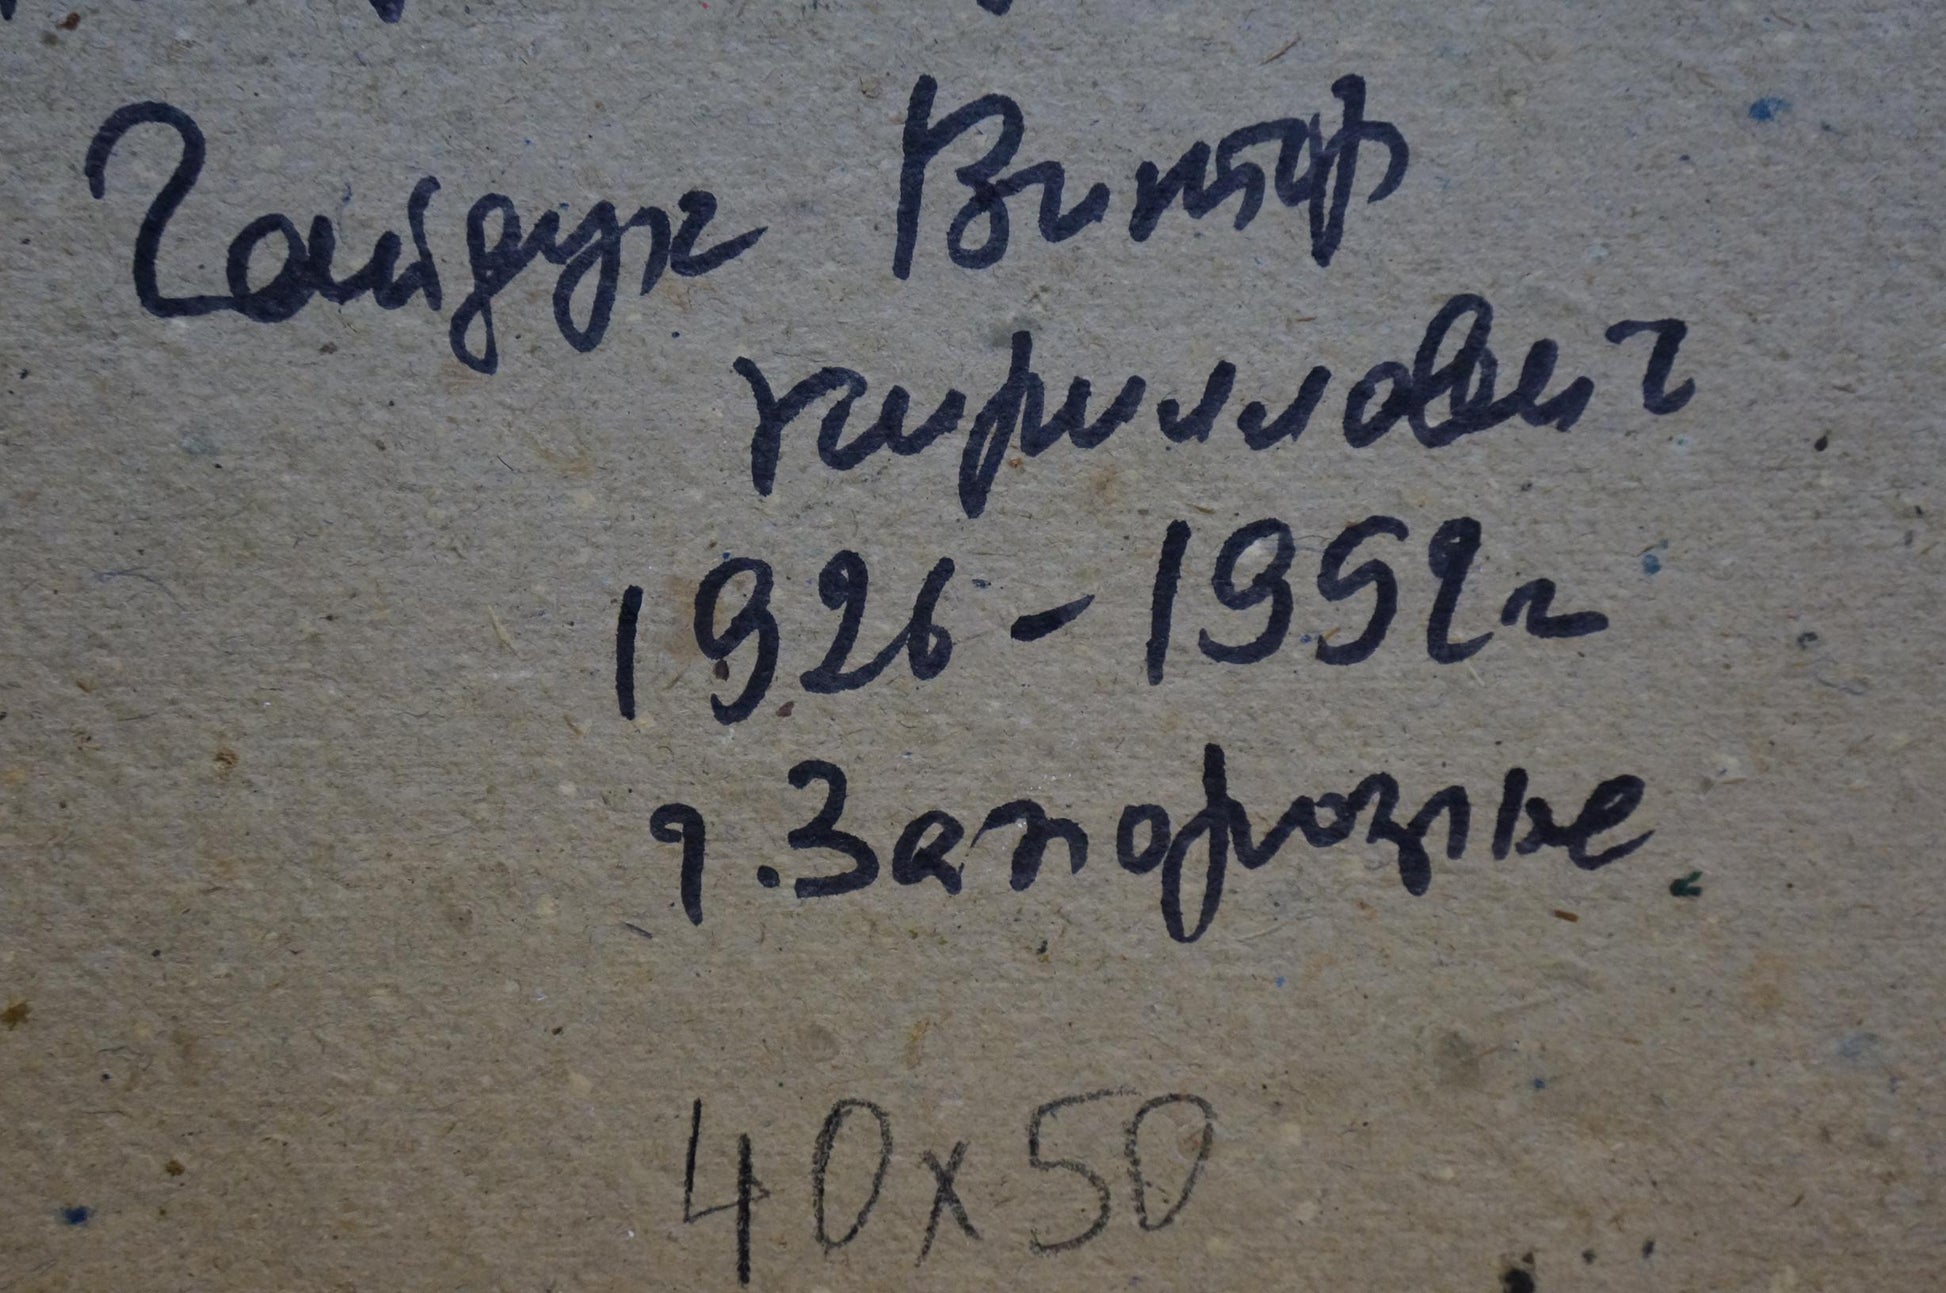 Гайдук Виктор
Кириллович
1926-1992г
г. Запорожье
40х50